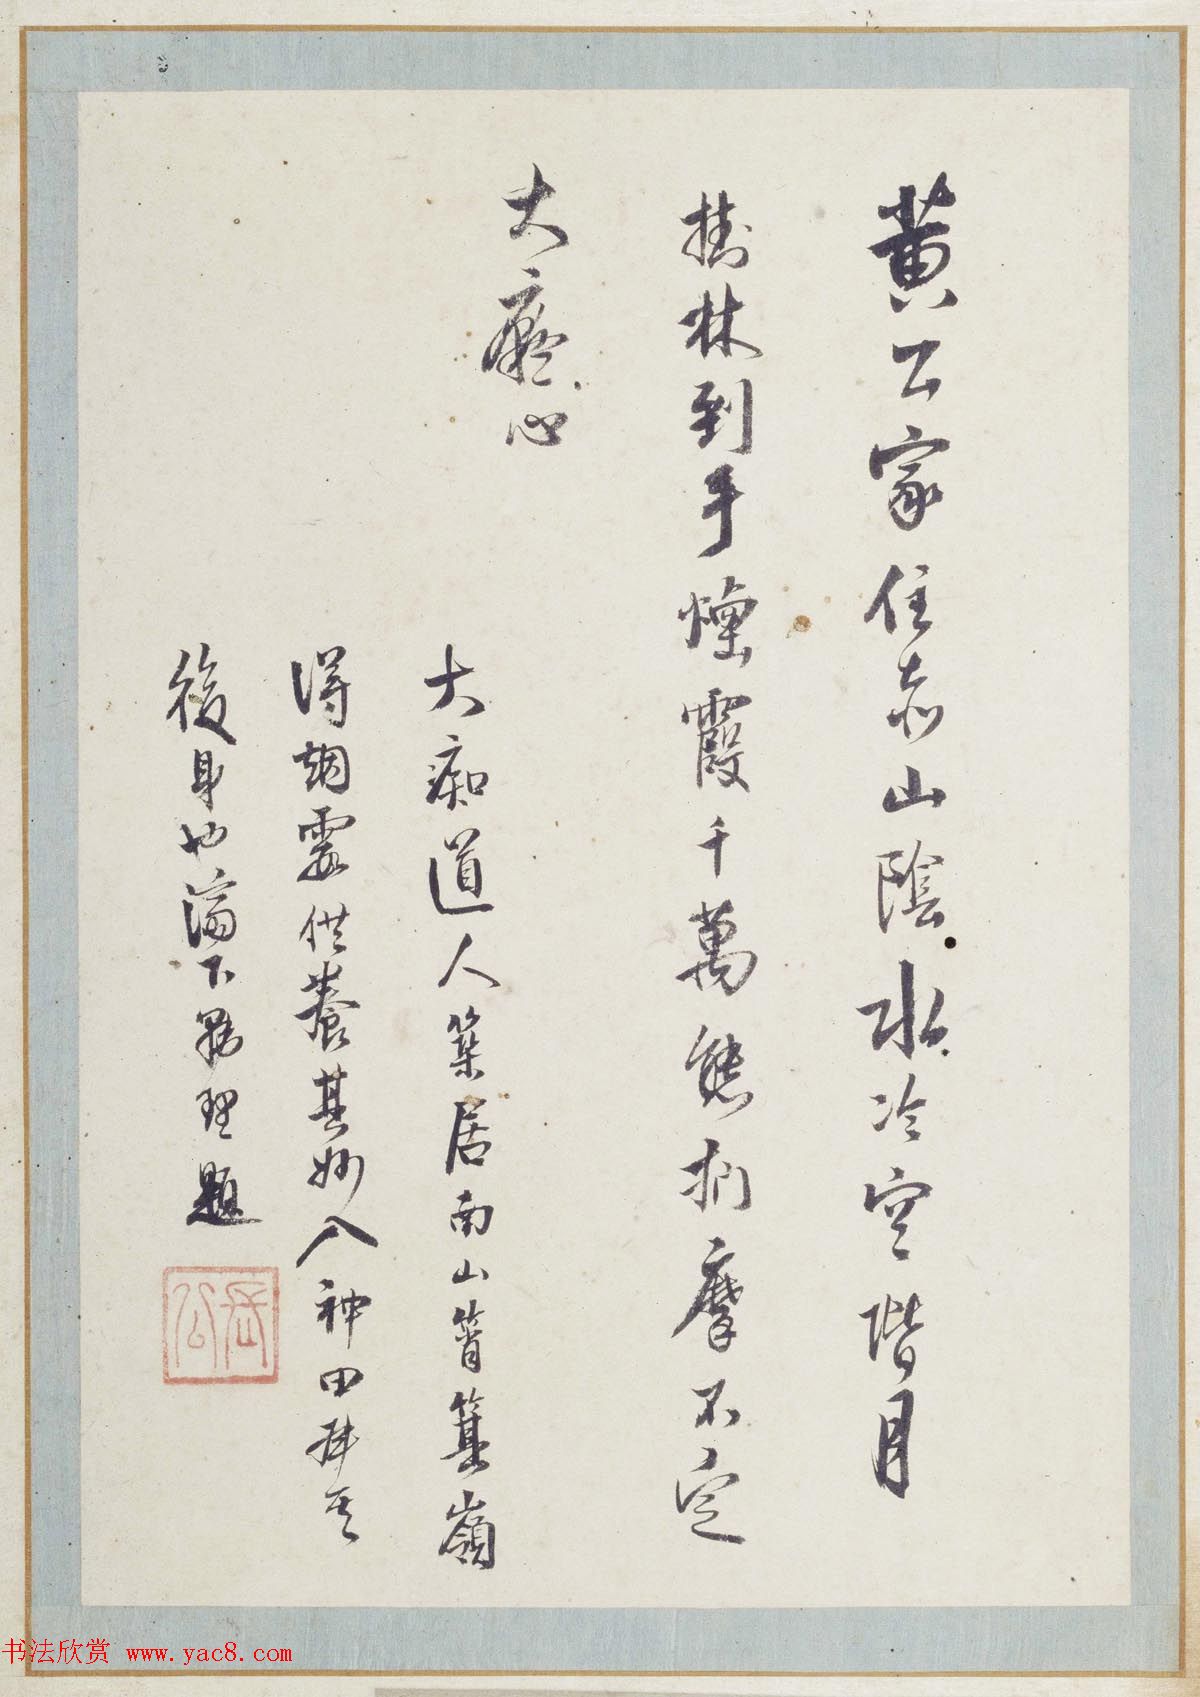 黄公家住赤山陰水冷空階月
掛林到手煙霞千萬態捫摩不定
大癡心
大痴道人築居南山筲箕嶺
得烟霞供養其妙入神田叔其
後身也 下 理題
書法欣赏 www.yac8.com